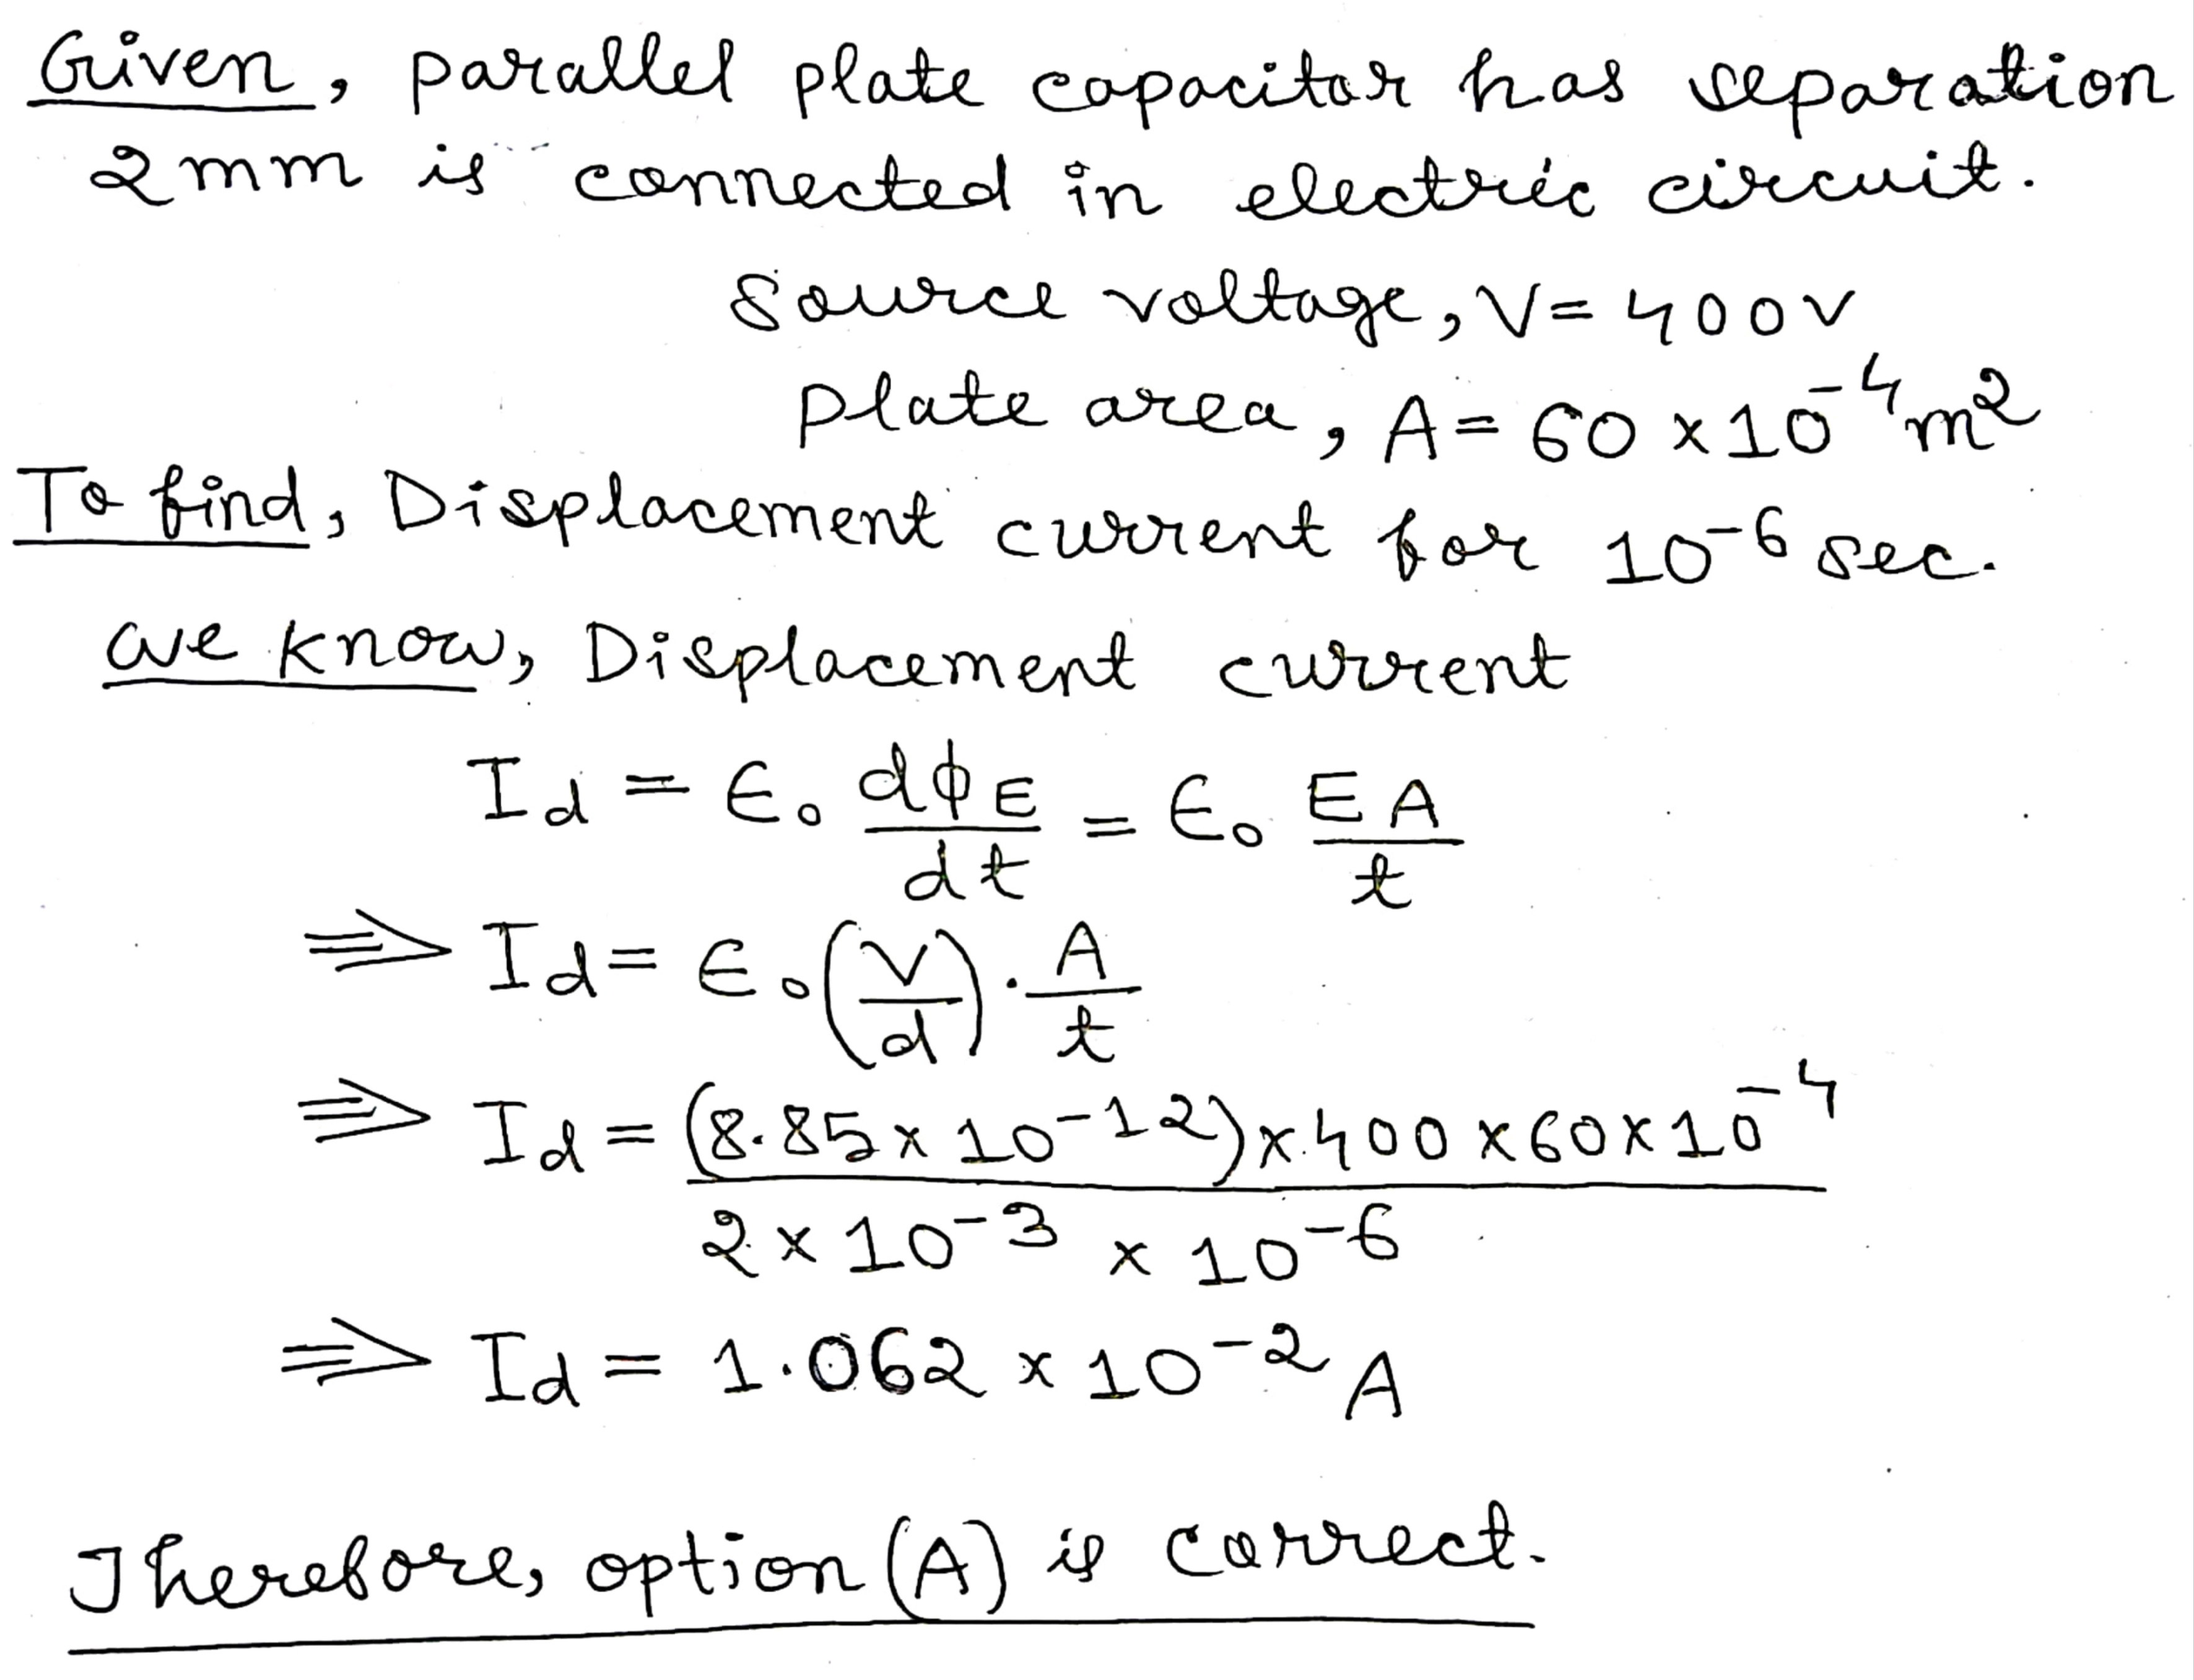 Given, parallel plate capacitor has separation
2mm is connected in electric circuit.
Source voltage, V = 400V
plate area, A = 60 × 10⁻⁴ m²
To find, Displacement current for 10⁻⁶ sec.
we know, Displacement current
I_d = ϵ₀ dϕ_E/dt = ϵ₀ EA/t
⇒ I_d = ϵ₀ (V/d) · A/t
⇒ I_d = (8.85 × 10⁻¹²) × 400 × 60 × 10⁻⁴ / 2 × 10⁻³ × 10⁻⁶
⇒ I_d = 1.062 × 10⁻² A
Therefore, option (A) is correct.